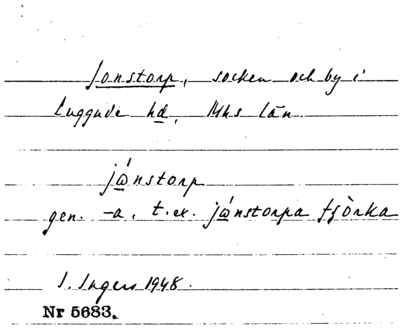 Jonstorp, socken och by i
Luggude hd, Mhs län.
jώnstorp
gen. -a, t.ex. jώnstorpa fjòrka
I. Ingers 1948.
Nr 5683.